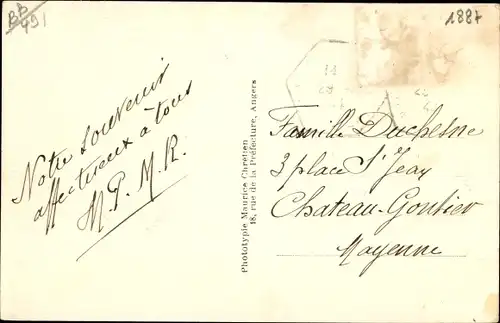 BB
491
1887
Notre souvenir
affectueux à tous
M. P. M. R.
Phototypie Maurice Chrétien
18, rue de la Préfecture, Angers
Famille Duchesne
3 place St Jean
Chateau-Gontier
Mayenne